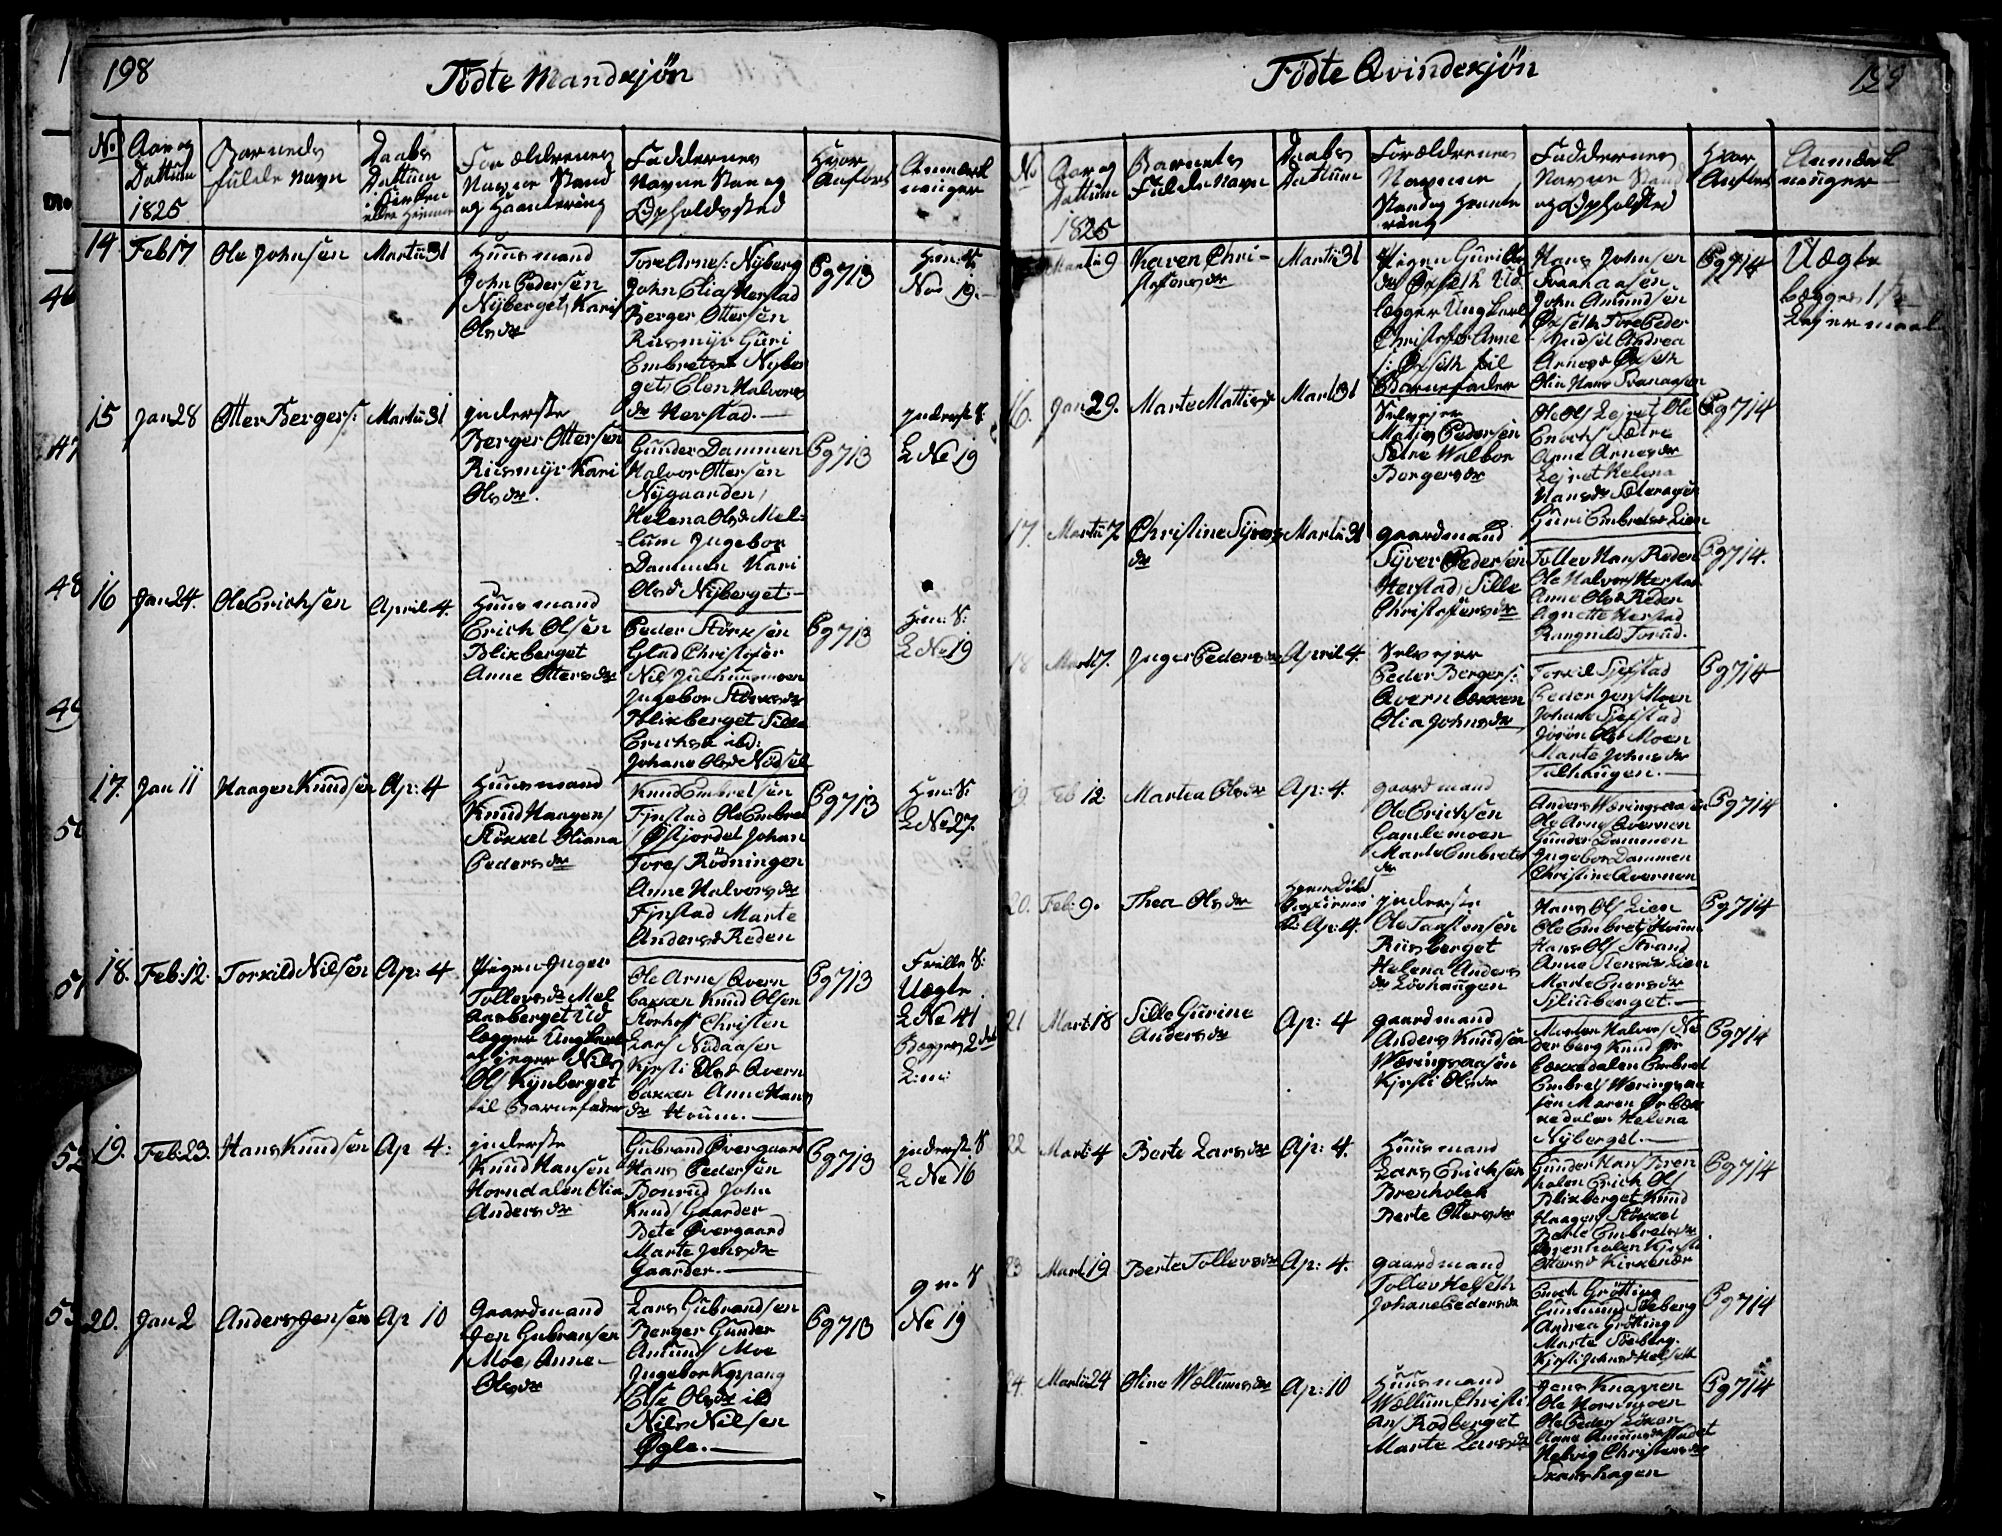 198
Födte Mandkjön
No
Aar og
Dattum
1825
Barneds
fulde Navn
Daabs
Dattum
i Kirken
eller Hiemme
Forældrenes
Navne Stand
og Haantering
Faddernes
Navne Stan og
Opholdssted
Hvor
Anført
Anmærk
ninger
14
Feb 17
Ole Johnsen
Martii 31
Huusmand
John Pedersen
Nÿberget, Kari
Olsdr
Tore Arnes: Nÿberg
John Elias Herstad
Berger Ottersen
Riismÿr Guri
Embretsdr Nÿber
get, Elen Halvors
dr Herstad.
Pg 713
Hm: S:
No 19.
15
Jan 28
Otter Bergers:
Martii 31
Inderste
Berger Ottersen
Riismÿr Kari
Olsdr.
Gunder Dammen
Halvor Ottersen
Nÿgaarden,
Helena Olsdr Mel-
lum Ingebor
Dammen Kari
Olsdr Nÿberget.
Pg 713
Inderst: S:
L No 19
16
Jan 24.
Ole Erichsen
April 4.
Huusmand
Erich Olsen
Blixberget
Anne Ottersdr
Peder Störksen
Glad Christofer
Ingebor Störksdr
Blixberget Sille
Erichsdr ibd:
Johane Olsdr Nödsel
Pg 713
Hm: S:
L No 19
17.
Jan 11
Haagen Knudsen
Ap: 4
Huusmand
Knud Haagens
Stökket Oliana
Pedersdr
Knud Embretsen
Fjnstad Ole Embret
Östjordet Johan
Tores Rödningen
Anne Halvorsdr
Fjnstad Marte
Andersdr Reden
Pg 713
Hm: S:
L No 27.
18.
Feb: 12
Torkild Nilsen
Ap: 4
Pigen Inger
Tollevsdr Mel
aasberget Ud
lægger Ungkarl
og Jeger Nils
Ols Kÿnberget
til Barnefader
Ole Arnes Qvern
bakken Knud Olsen
Storhof Christen
Lars Nödaasen
Kjrsti Olsdr Qvern
bakken Anne Hans
dr Hvum.
Pg 713
Frille S:
Uægte.
L No 41
Begges 2det
Leier:
19.
Feb: 23.
Hans Knudsen
Ap 4:
Inderste
Knud Hansen
Horndalen Olia
Andersdr
Gubrand Övergaard
Hans Pedersen
Bonrud John
Knuds Gaarder
Bete Övergaard
Marte Jensdr
Gaarder.
Pg 713
Inderst: S
L No 16
20.
Jan 2
Anders Jensen
Ap 10
Gaardmand
Jen Gubransen
Moe, Anne
Olsdr
Lars Gubrandsen
Berger Gunder
Amunds Moe
Ingebor Kgspang
Else Olsdr ib
Nils Nilsen
Øgle.
Pg 713
g m S
No 19
Födte Qvindekjön
199
No
Aar og
Dattum
1825
Barnets
Fulde Navn
Daabs
Dattum
Forældrenes
Navne
Stand og Hante
ring
Faddernes
Navne Stand
og Opholdsted
Hvor
Anført
Anmærk
ninger
Martii 9
Karen Chri-
stofersdr
Martii 31
Pigen Guri
lægger Ungkarl
Christofer Arne
s: Örseth til
Barnefader
Hans Johnsen
Svanaasen,
John Amundsen
Örseth Tore Peder
Andrea
Arnesdr Örseth
Olia Hans Svanaasen
Pg 714
Uægte
begges 1ste
Leiermaal
16.
Jan 29.
Marte Mattisdr
Marti 31
Selvejer
Matis Pedersen
Sætre Walbor
Borgersdr
Ole Ols Lejret Ole
Enochs Sætre
Anne Arnesdr
Lejret Helena
Hansdr Sæteraasen
Guri Embretsdr Lien
Pg 714
17.
Martii 7
Christine Sÿvers
dr
Martii 31
gaardmand
Sÿver Pedersen
Herstad, Sille
Christofersdr
Tollev Hans Reden
Ole Halvors Herstad
Anne Olsdr Reden
Agnette Herstad
Rangnild Torud.
Pg 714.
18
Mart 17.
Inger Pedersdr
April 4.
Selvejer
Peder Bergers:
Qvernbækken
Olia Johnsdr
Torkil Sjetstad
Peder Jens Moen
Johane Sjetstad
Jörön Olsdr Moen
Marte Johnsdr
Talhaugen.
Pg 714
19.
Feb 12.
Martea Olsdr
Ap: 4.
gaardmand
Ole Erichsen
Gamlemoen
Marte Embrets
dr
Anders Wæringsaasen
Ole Arns Qvernen
Gunder Dammen
Ingebor Dammen
Christine Qvernen
Pg 714
20.
Feb: 9.
Thea Olsdr
Ap. 4.
Inderste
Ole Torstensen
Riisberget
Helena Anders
dr Lövhaugen
Hans Ols Lien
Ole Embrets Hvum
Hans Ols Strand
Anne Stensdr Lien
Marte Enersdr
Sjliuberget.
Pg 714
21
Mart: 18
Sille Gurine
Andersdr
Ap: 4
gaardmand
Anders Knudsen
Wæringsaasen
Kjrsti Olsdr
Morten Halvors Ne
derberg Knud Ör
bækkedalen Embret
Embrets Wæringsaa
sen Maren Ör bæk
kedalen Helena
Nÿberget.
Pg 714
22
Mart: 4
Berte Larsdr
Ap: 4.
Huusmand
Lars Erichsen
Brenholen
Berte Ottersdr
Gunder Hans Bren
holen Erich Ols
Blixberget Knud
Haagens Stökket
Berte Embretsdr
Brenholen Kjrsti
Ottersdr Kirkenær
Pg 714
23
Mart 19
Berte Tollevsdr
Ap: 4.
gaardmand
Tollev Helseth
Johane Pedersdr
Enoch Grötting
Gunmund Söeberg
Andrea Grötting
Marte Söeberg.
Kjrsti Johnsdr Helseth
Pg 714
24.
Martii 24
Oline Wællumsdr
Ap: 10
Huusmand
Wællum Christi
ans Rödberget
Marte Larsdr
Jens Knappen
Ole Hornmoen
Ole Peders Löken
Anne Amundsdr Stadet
Helvig Christensdr
Svenshagen
Pg 714
46
47
48
49
50
51
52
53